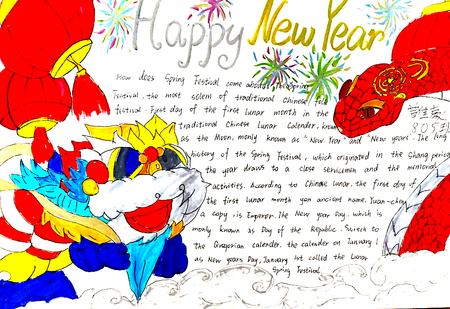 Happy New Year
How does Spring Festival come about? The Spring
Festival, the most solem of traditional Chinese
festival. First day of the first lunar month in the
traditional Chinese Lunar Calender, known
as the Moon, monly known as "New Year" and "New years". The long
history of the Spring Festival, which originated in the Shang period
the year draws to a close servicimen and the memorial
activities. According to Chinese lunar, the first day of
the first lunar month yan ancient name. Yuan-chen
a copy is Emperor. The New year Day, which is
monly known as Day of the Republic. Switch to
the Gregorian calender, the calender on January 1
as New years Day, January 1st called the Lunar
Spring Festival.
805班